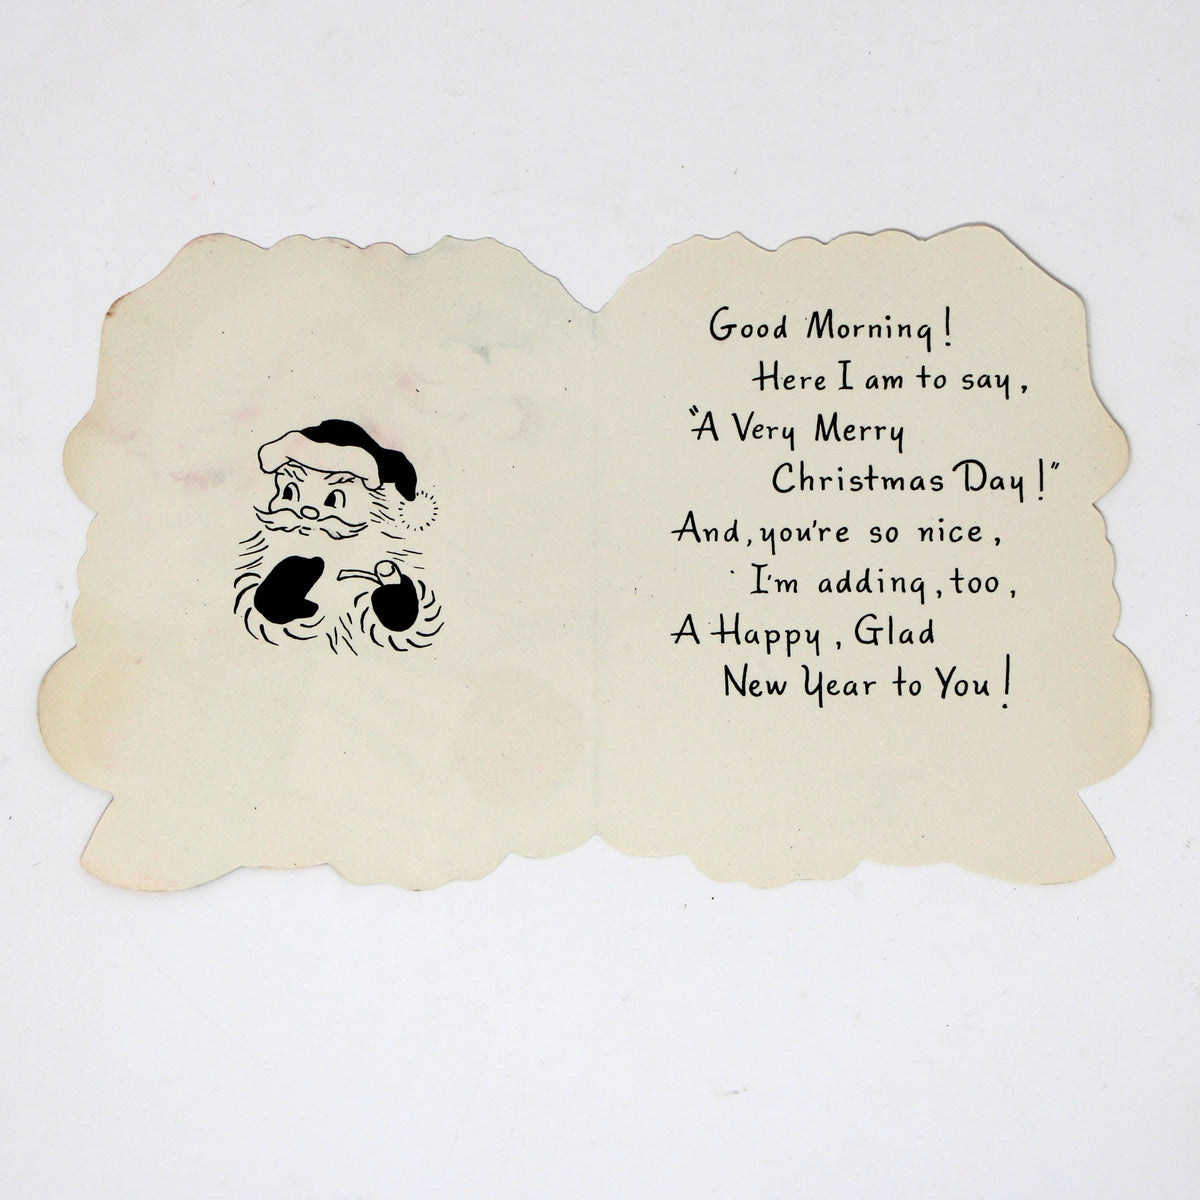 Good Morning!
Here I am to say,
"A Very Merry
Christmas Day!"
And, you're so nice,
I'm adding, too,
A Happy, Glad
New Year to You!